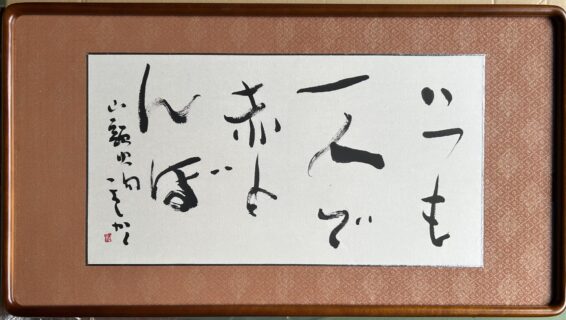 いつも
一人で
赤と
んぼ
山頭火句